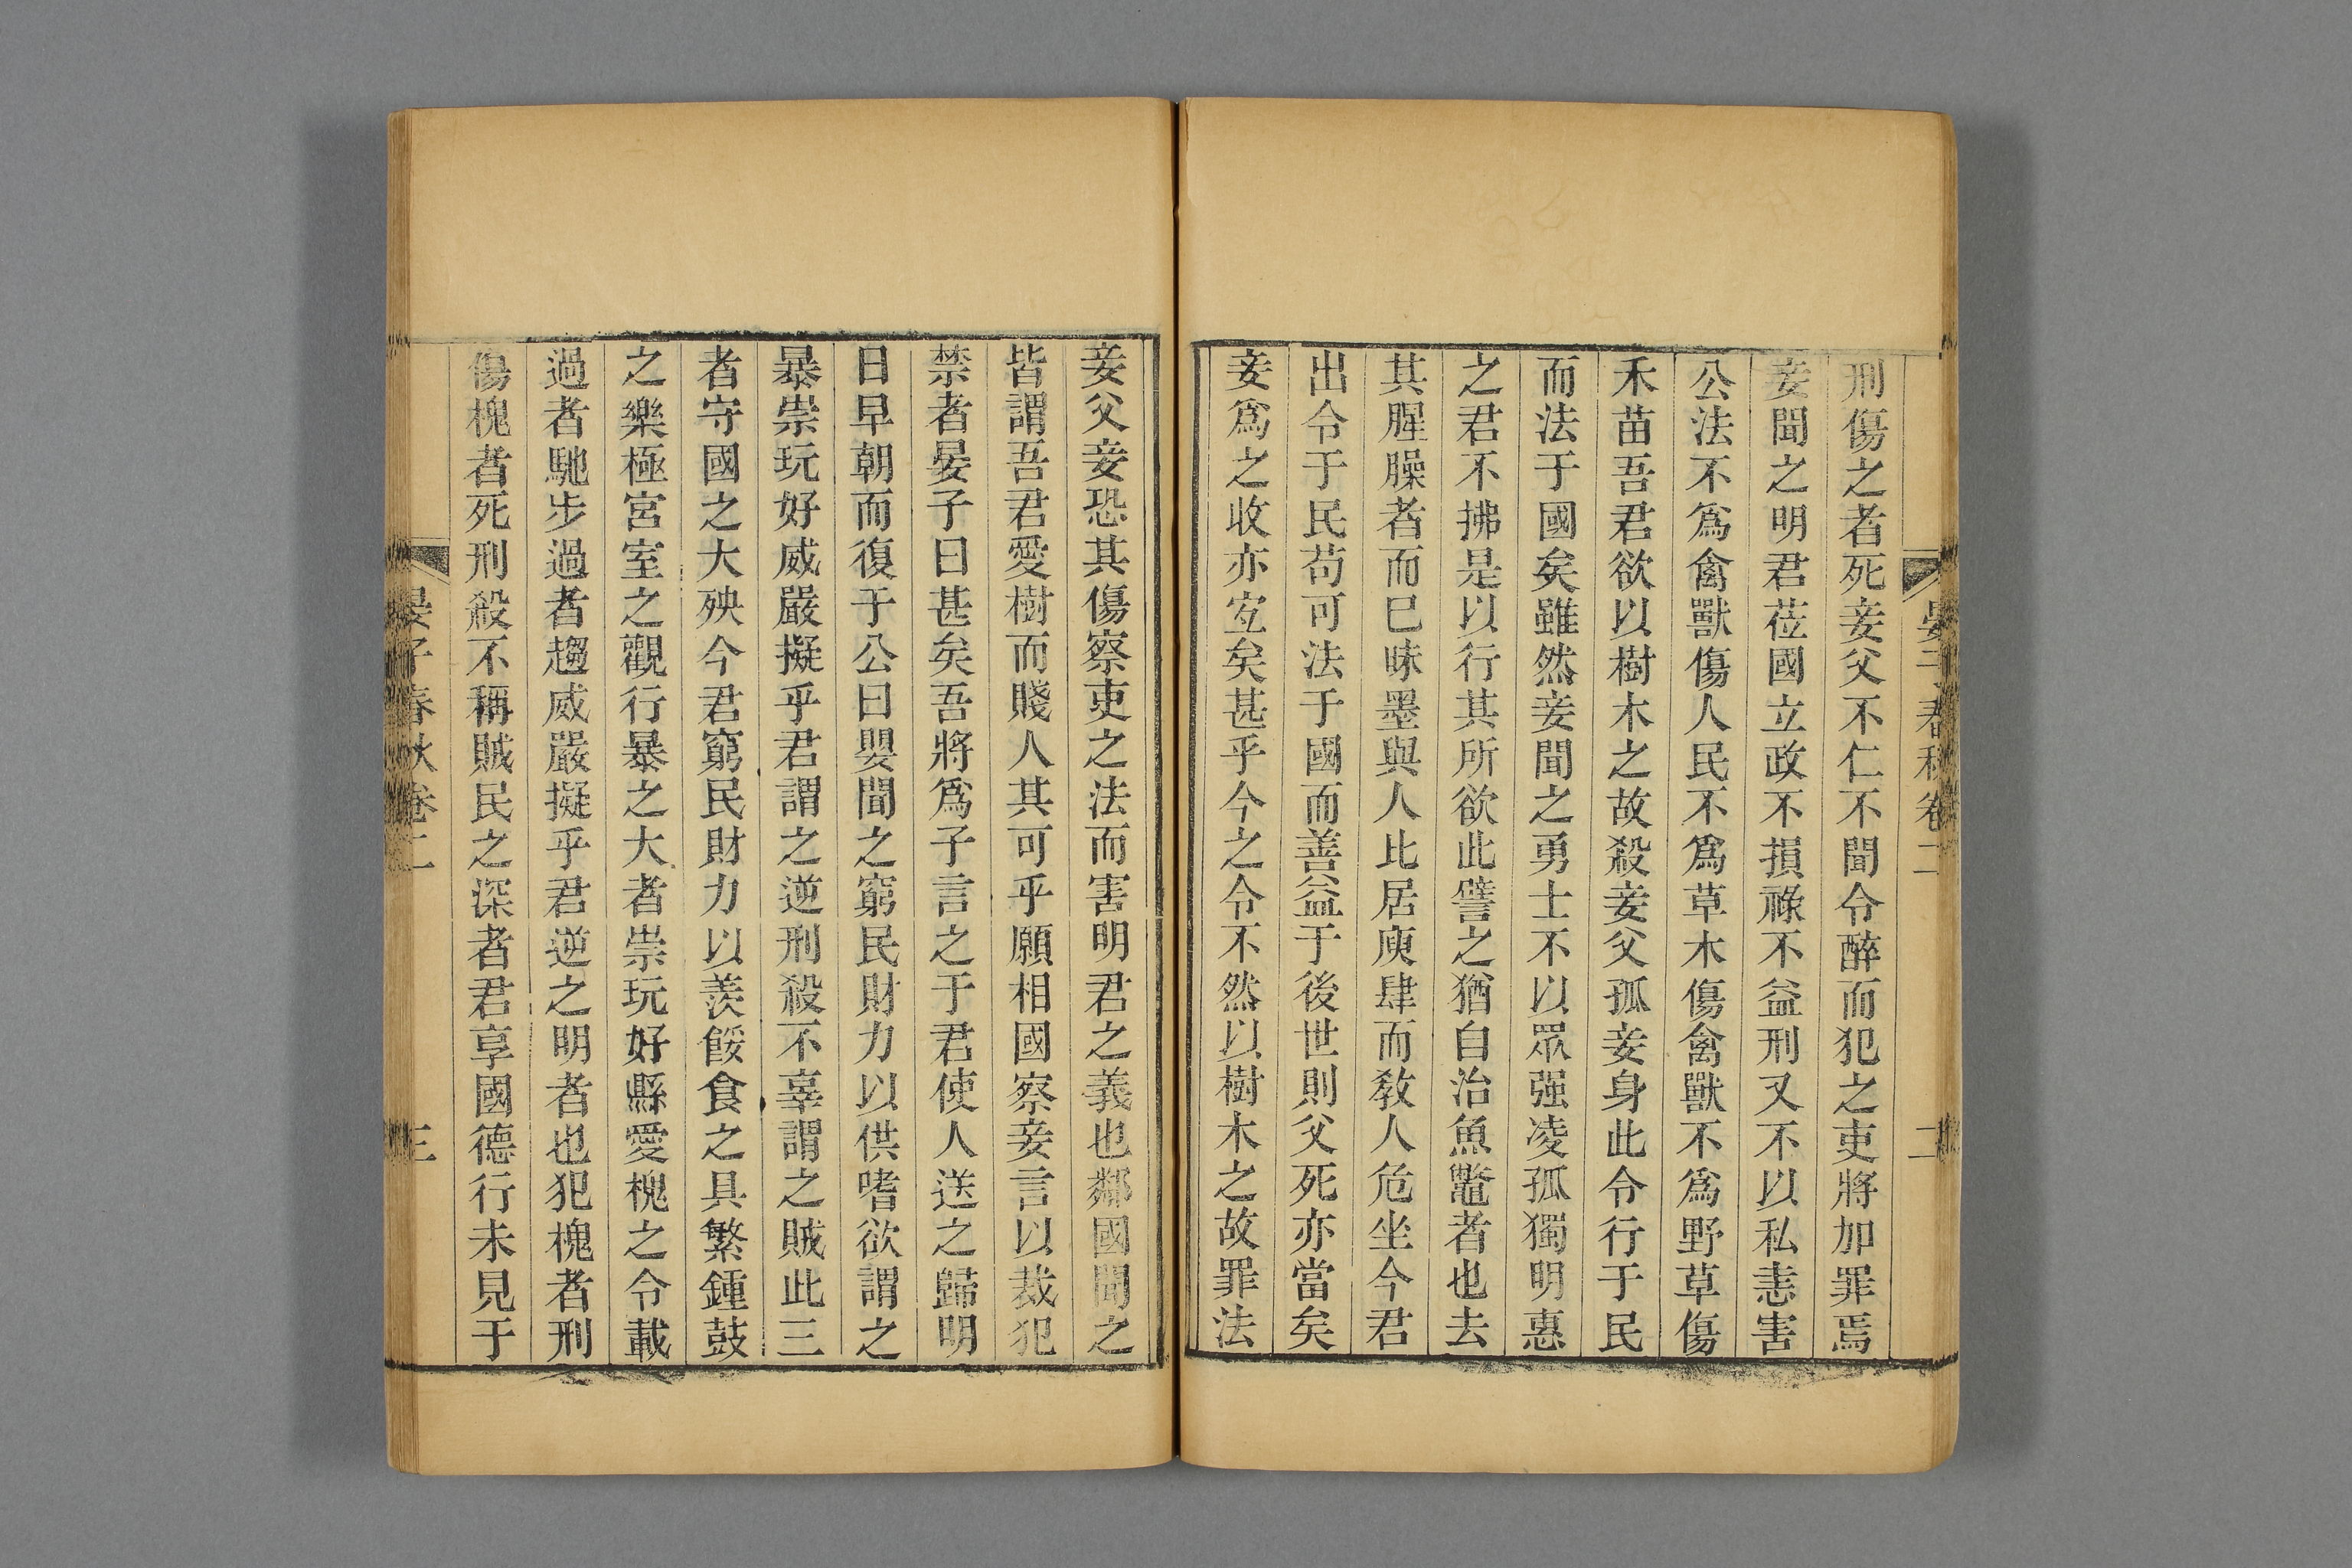 晏子春秋卷二
二
刑傷之者死妾父不仁不聞令醉而犯之吏將加罪焉
妾聞之明君莅國立政不損祿不益刑又不以私恚害
公法不爲禽獸傷人民不爲草木傷禽獸不爲野草傷
禾苗吾君欲以樹木之故殺妾父孤妾身此令行于民
而法于國矣雖然妾聞之勇士不以眾强凌孤獨明惠
之君不拂是以行其所欲此譬之猶自治魚鼈者也去
其腥臊者而巳昧墨與人比居庾肆而教人危坐今君
出令于民苟可法于國而善益于後世則父死亦當矣
妾爲之收亦宐矣甚乎今之令不然以樹木之故罪法
妾父妾恐其傷察吏之法而害明君之義也鄰國聞之
皆謂吾君愛樹而賤人其可乎願相國察妾言以裁犯
禁者晏子曰甚矣吾將爲子言之于君使人送之歸明
日早朝而復于公曰嬰聞之窮民財力以供嗜欲謂之
暴崇玩好威嚴擬乎君謂之逆刑殺不辜謂之賊此三
者守國之大殃今君窮民財力以羨餧食之具繁鍾鼓
之樂極宮室之觀行暴之大者崇玩好縣愛槐之令載
過者馳步過者趨威嚴擬乎君逆之明者也犯槐者刑
傷槐者死刑殺不稱賊民之深者君享國德行未見于
晏子春秋卷二
三